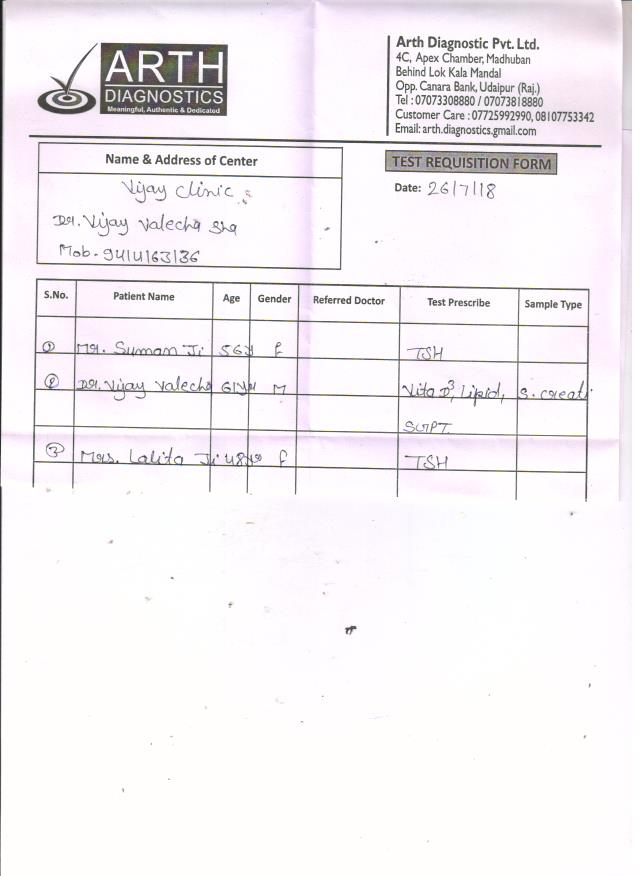 ARTH
DIAGNOSTICS
Meaningful, Authentic & Dedicated
Arth Diagnostic Pvt. Ltd.
4C, Apex Chamber, Madhuban
Behind Lok Kala Mandal
Opp. Canara Bank, Udaipur (Raj.)
Tel : 07073308880 / 07073818880
Customer Care : 07725992990, 08107753342
Email: arth.diagnostics.gmail.com
Name & Address of Center
Vijay Clinic
Dr. Vijay Valecha
Mob. 9414163136
TEST REQUISITION FORM
Date: 26/7/18
S.No. Patient Name Age Gender Referred Doctor Test Prescribe Sample Type
① Mr. Suman Ji 56y F TSH
② Dr. Vijay Valecha 61 M Vita D3, Lipid, S. creati
SGPT.
③ Mrs. Lalita Ji 48 F TSH